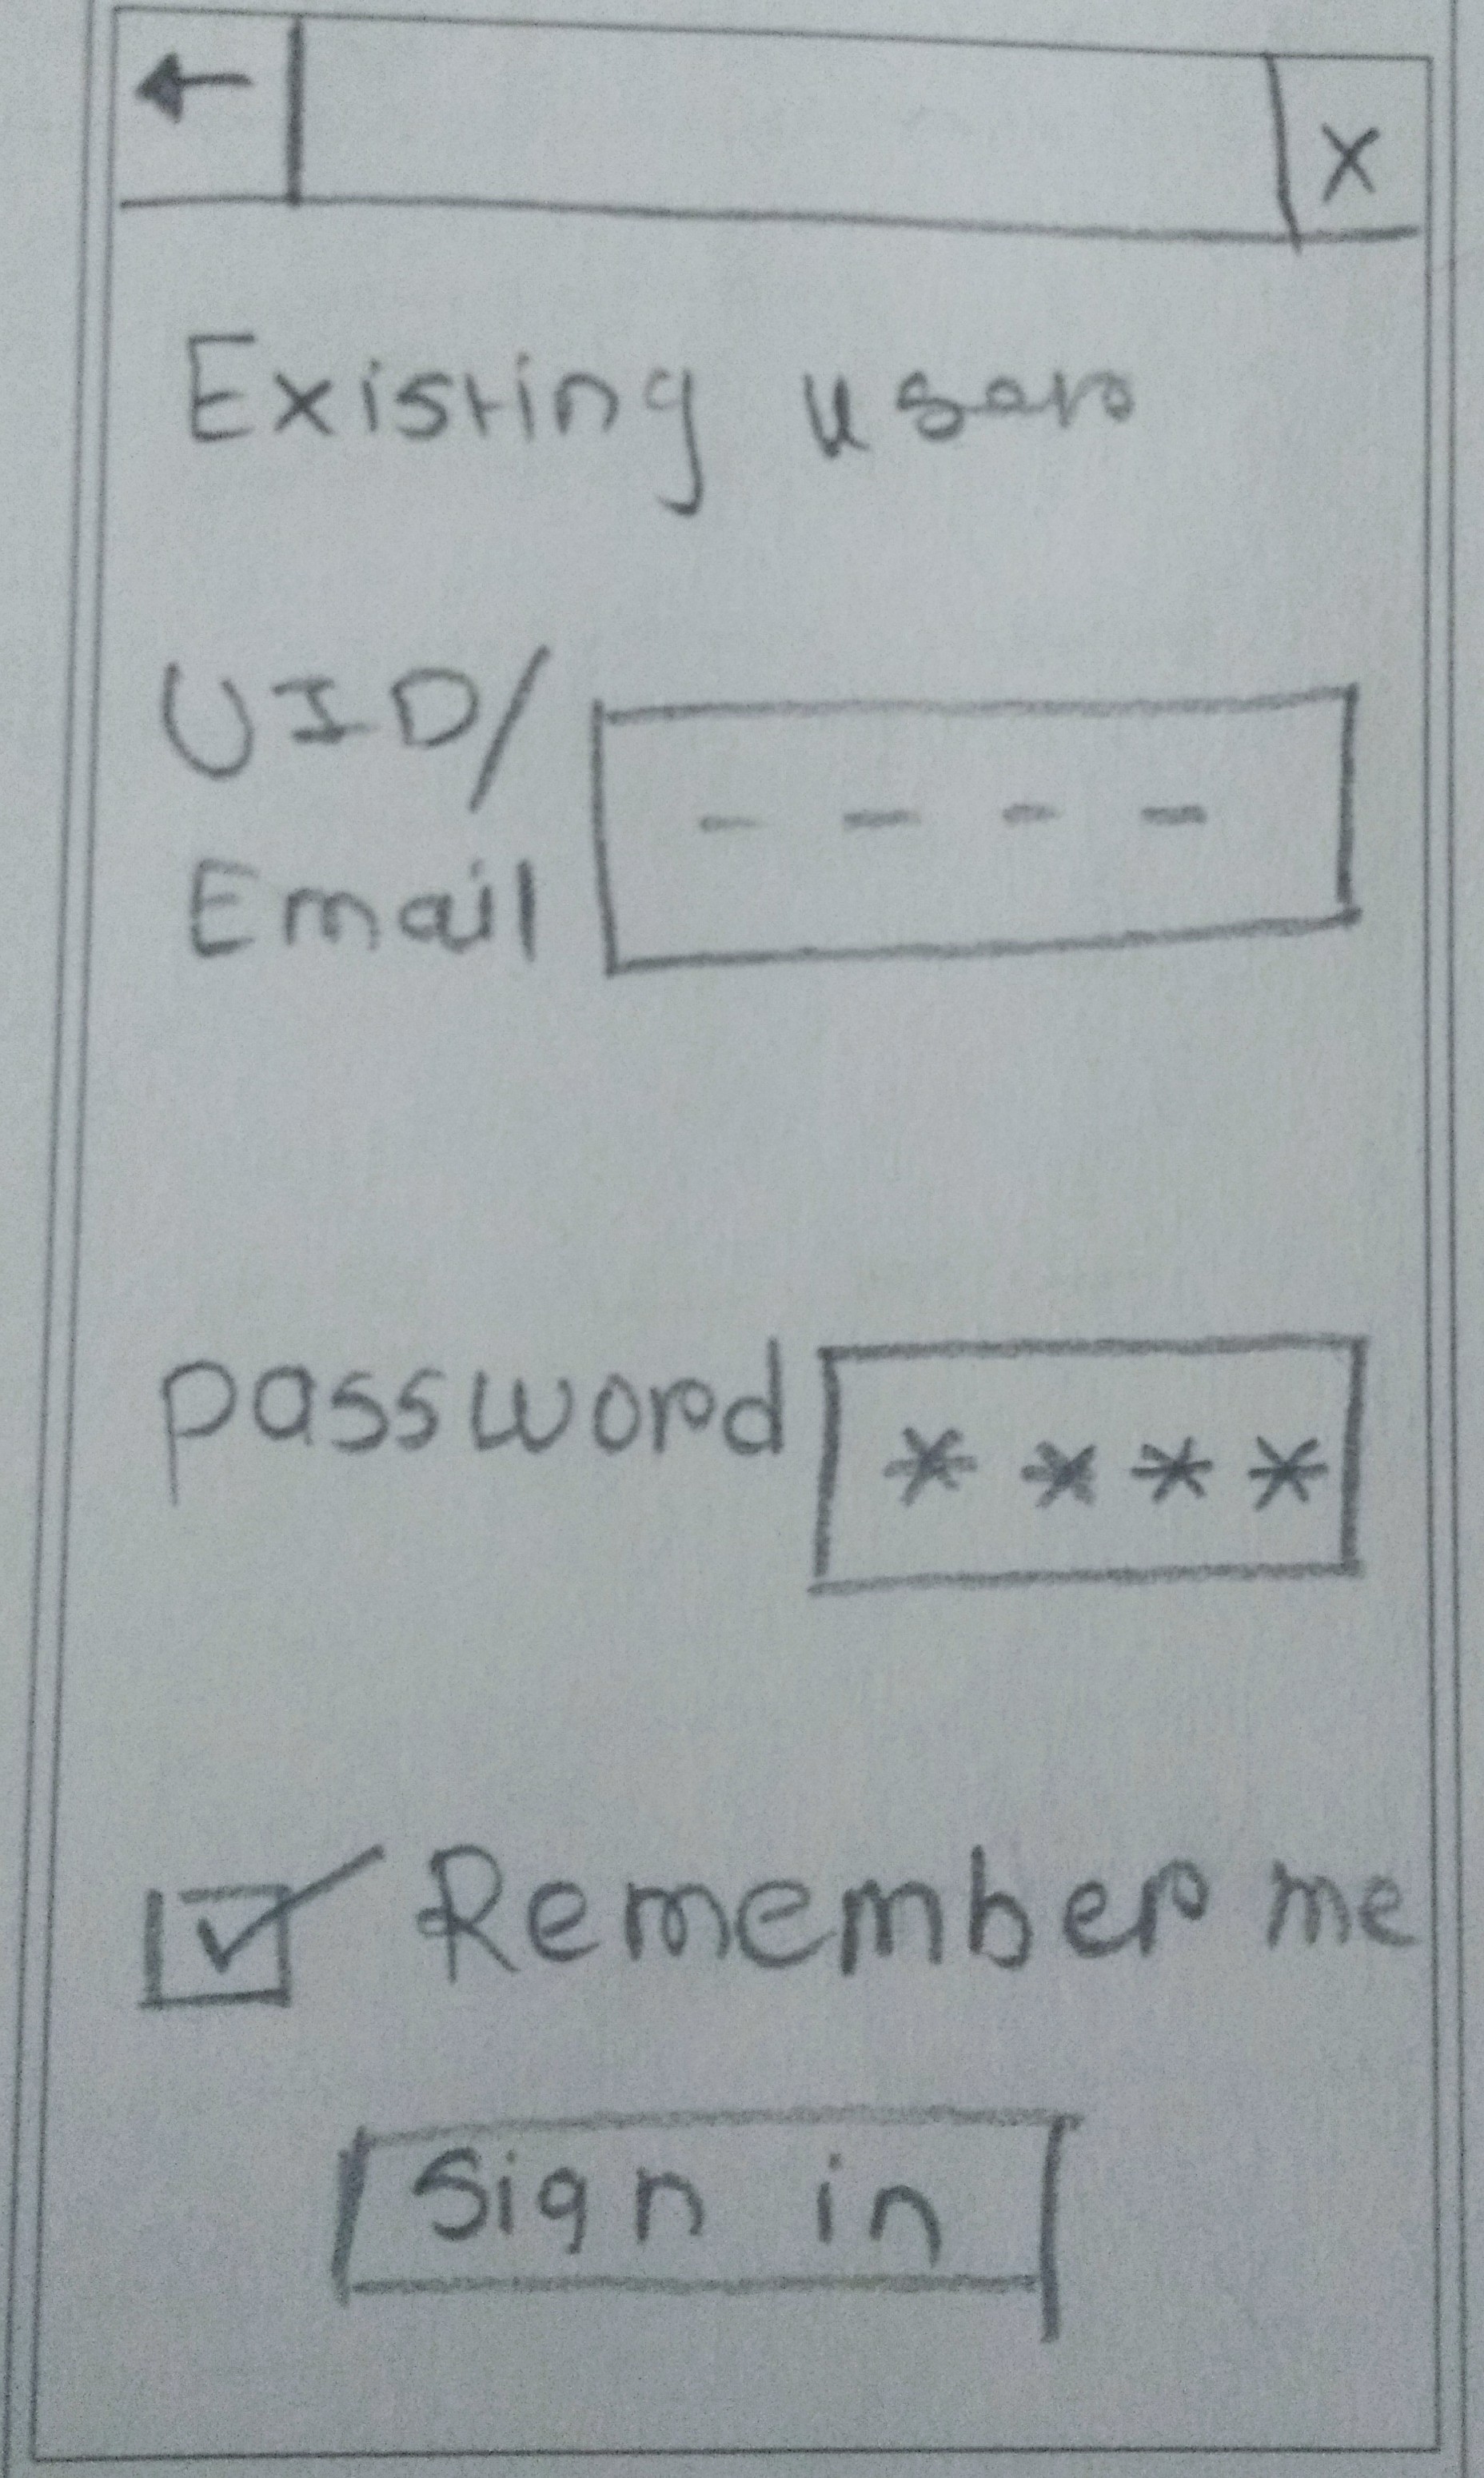 ←
X
Existing user
UID/
Email
- - - -
password
* * * *
Remember me
Sign in